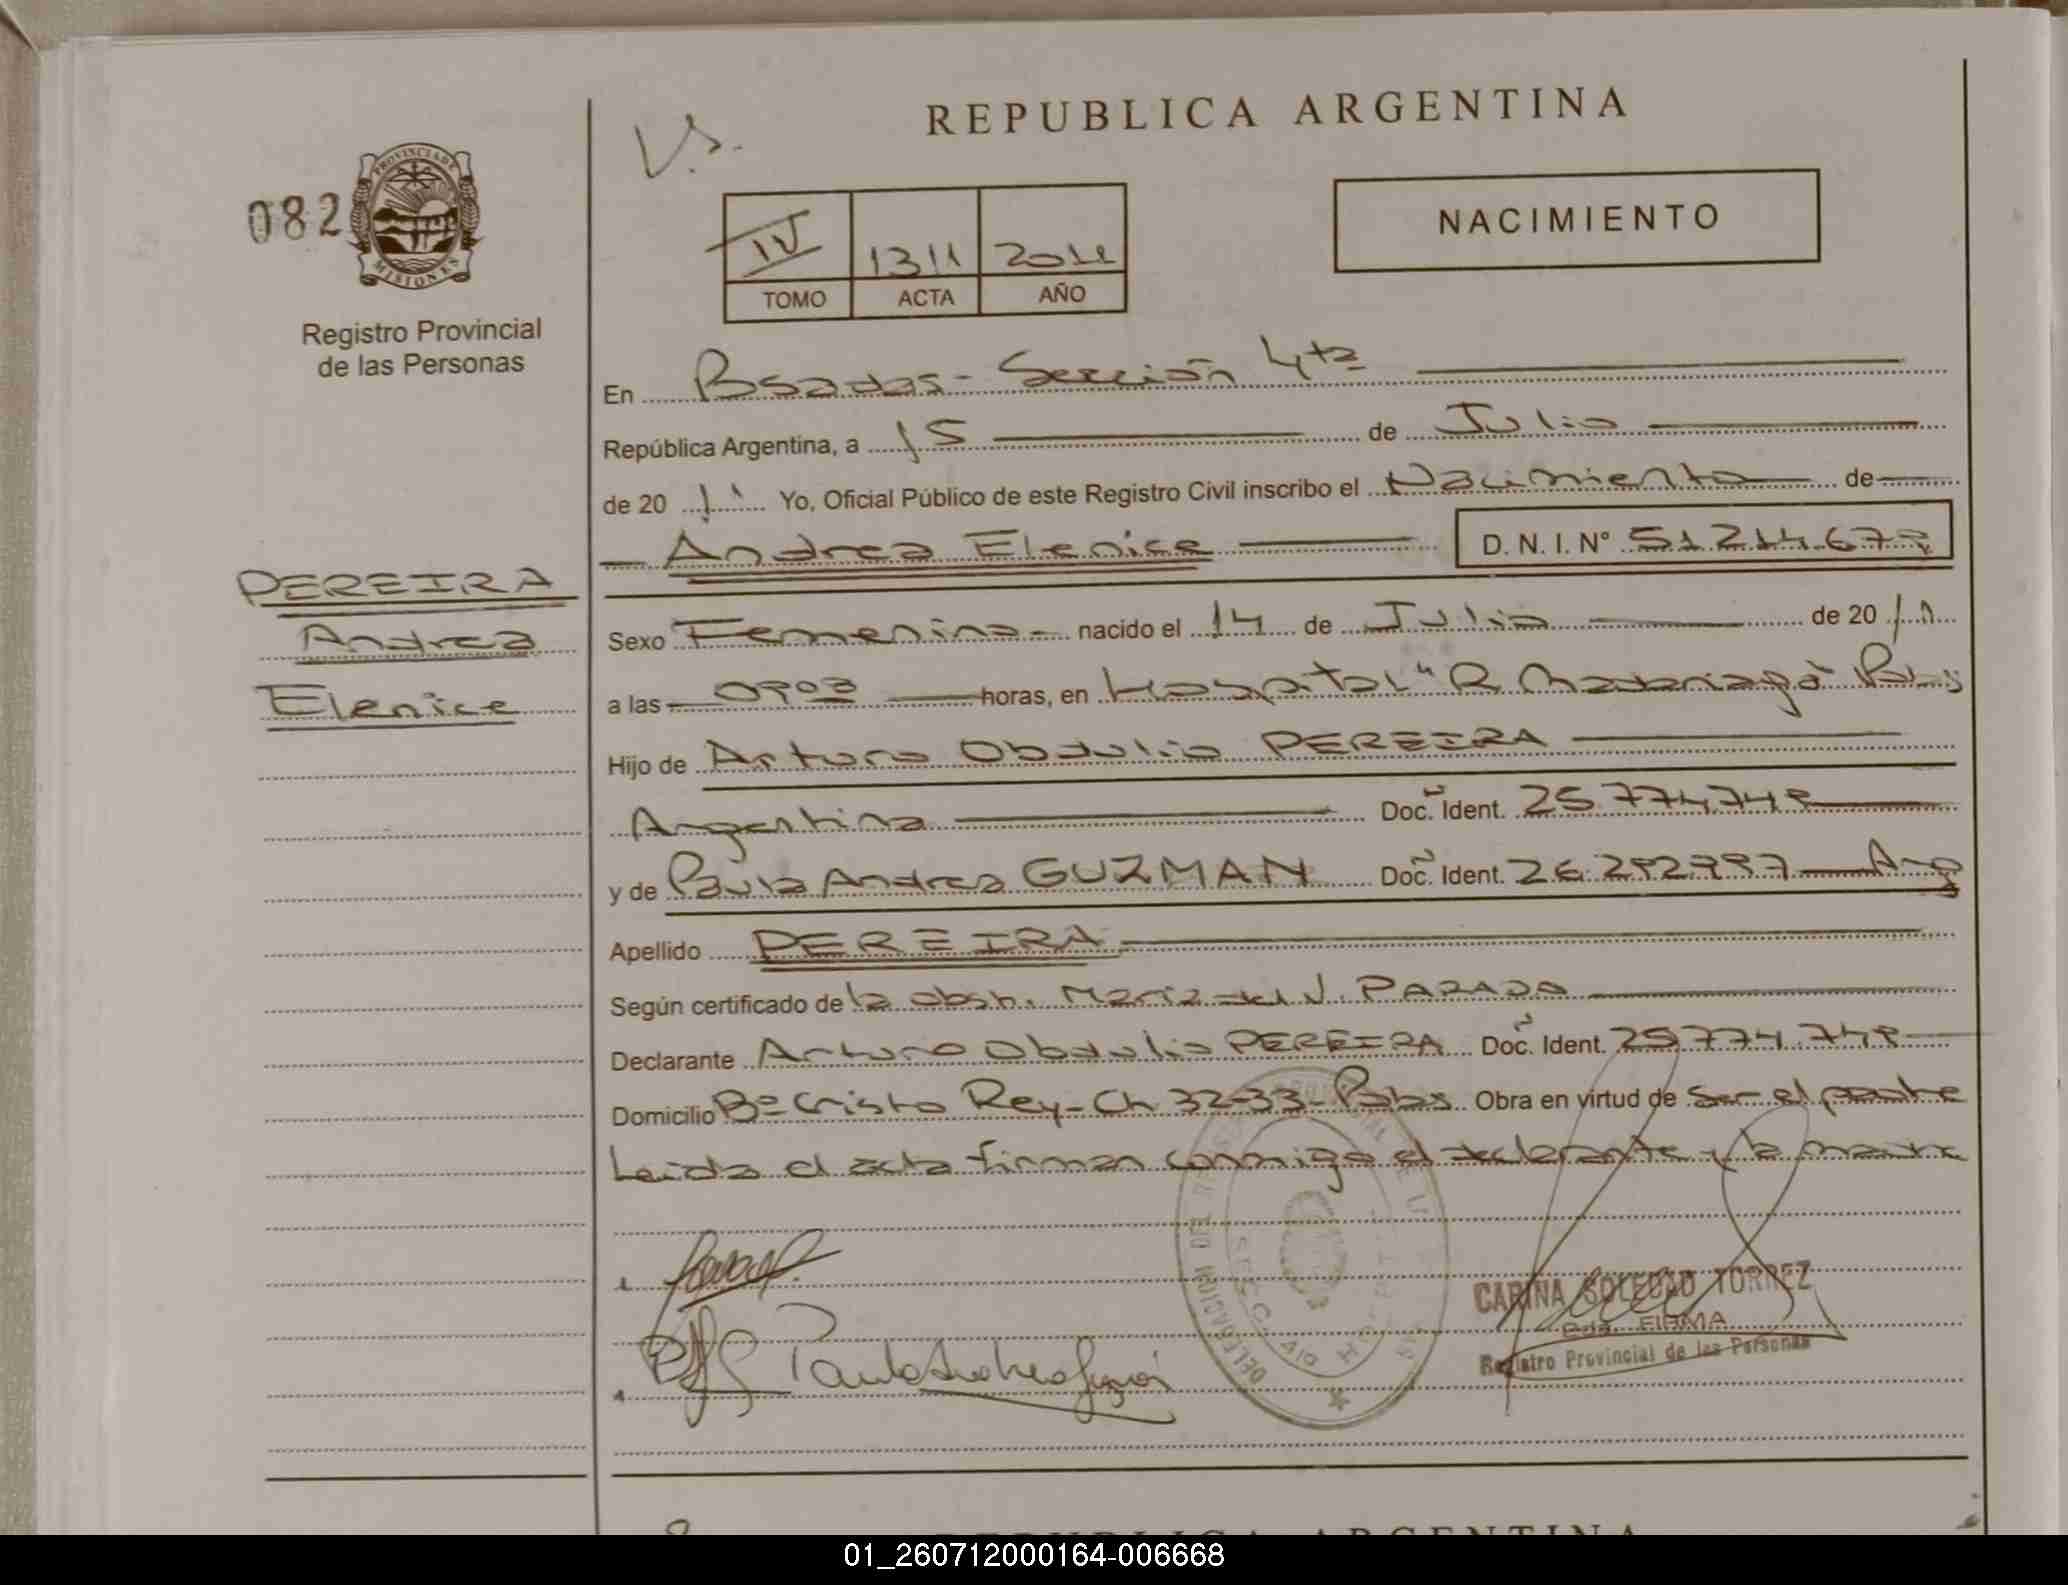 REPUBLICA ARGENTINA
V.S.
082
PROVINCIA DE MISIONES
Registro Provincial
de las Personas
IV 1311 2011
TOMO ACTA AÑO
NACIMIENTO
En Posadas - Sección 4ta
República Argentina, a 15 de Julio
de 20 11 Yo, Oficial Público de este Registro Civil inscribo el Nacimiento de
Andrea Elenice D. N. I. N°
PEREIRA
Andrea
Elenice
Sexo Femenino nacido el 14 de Julio de 20 11
a las horas, en Hospital "R Madariaga" Pdas
Hijo de Arturo Obdulio PEREIRA
Argentina Doc. Ident. 25.774.748
y de Paula Andrea GUZMAN Doc. Ident. Arg
Apellido PEREIRA
Según certificado de la obst. María del V. PARADA
Declarante Arturo Obdulio PEREIRA Doc. Ident. 25.774.748
Domicilio B° Cristo Rey - Ch 32-33 - Pdas Obra en virtud de ser el padre
Leida el acta firman conmigo el declarante y la madre
CARINA SOLEDAD TORREZ
FIRMA
Registro Provincial de las Personas
Paula Andrea Guzmán
DELEGACION DEL REGISTRO PROVINCIAL DE LAS
REPUBLICA ARGENTINA
01_260712000164-006668